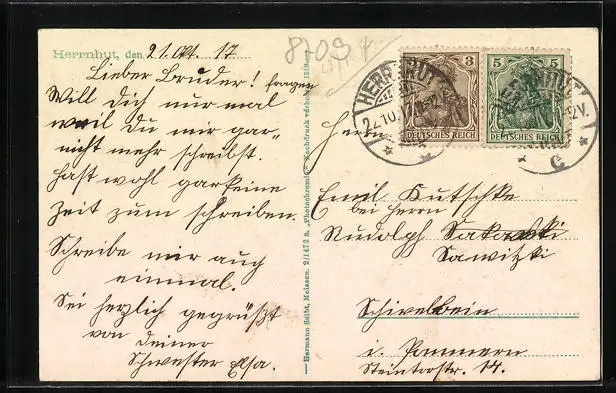 Herrnhut, den 21. Okt. 17
Lieber Bruder! fragen
Will Dich nur mal
weil du mir gar
nicht mehr schreibst.
Hast wohl gar keine
Zeit zum schreiben.
Schreibe mir auch
einmal.
Sei herzlich gegrüßt
von deiner
Schwester Elsa.
Hermann Seibt, Meissen. 2/1472 a. „Photochromie" Nachdruck verboten.
8709
3
DEUTSCHES REICH
5
DEUTSCHES REICH
HERRNHUT
22.10.17
Herrn
Emil Kutschke
bei Herrn
Rudolph
Sawitzki
Schivelbein
i. Pommern
Steintorstr. 14.